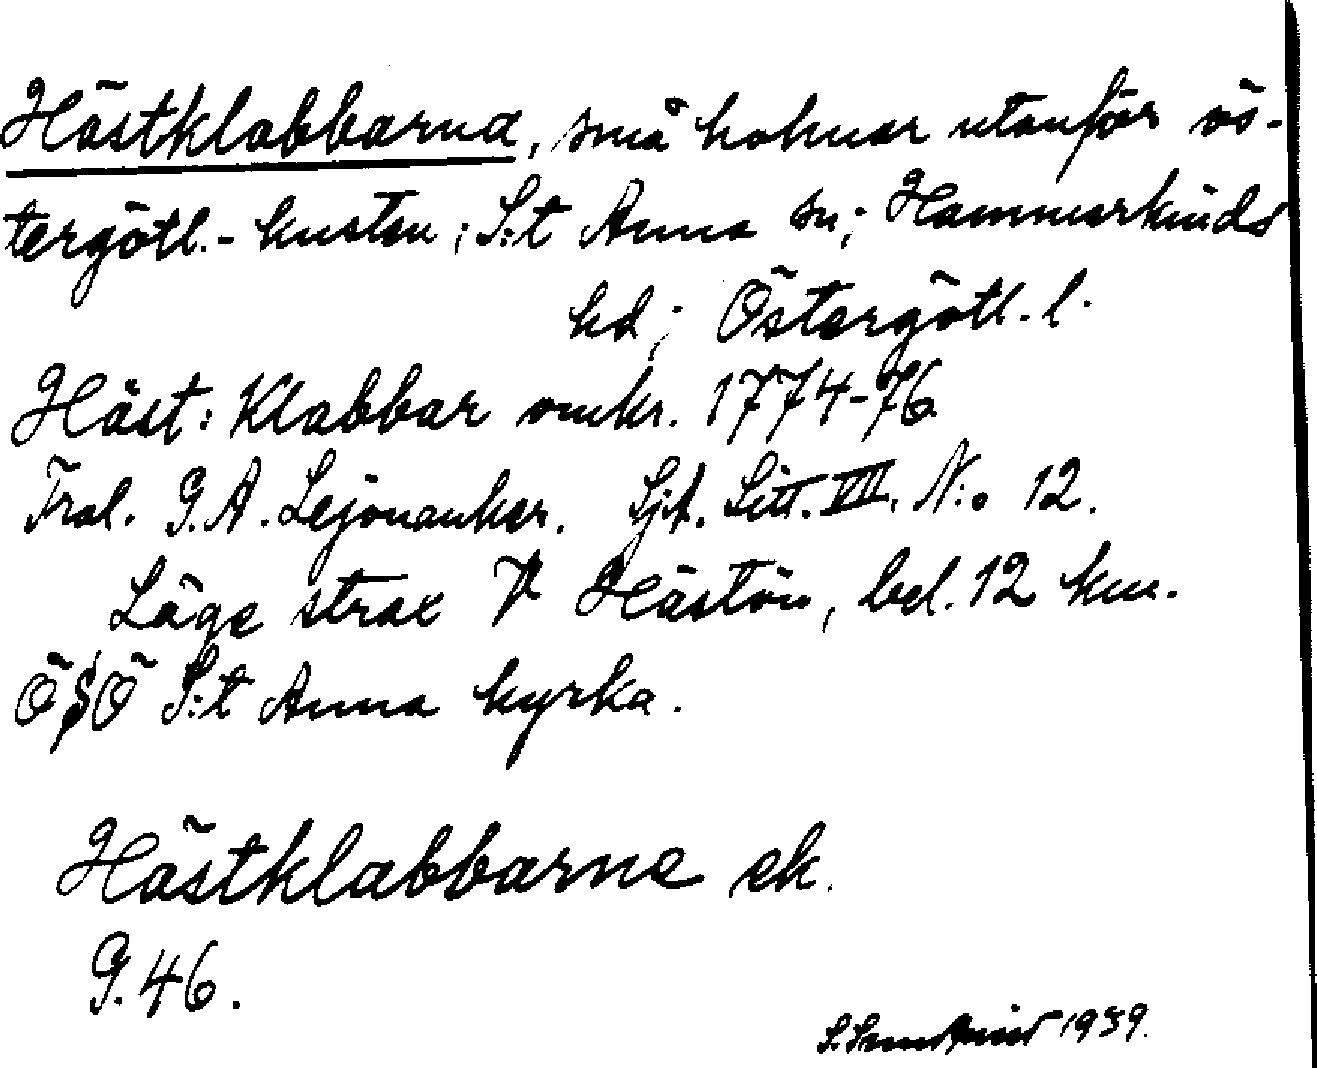 Hästklabbarna, små holmar utanför ös-
tergötl.- kusten; S:t Anna sn; Hammarkinds
hd; Östergötl. l.
Häst: Klabbar omkr. 1774-76
Trol. G. A. Lejonanker. Sjf. Litt. VII. N:o 12.
Läge strax V Hästön, bel. 12 km.
ÖSÖ S:t Anna kyrka.
Hästklabbarne ek.
G. 46.
S. 1939.